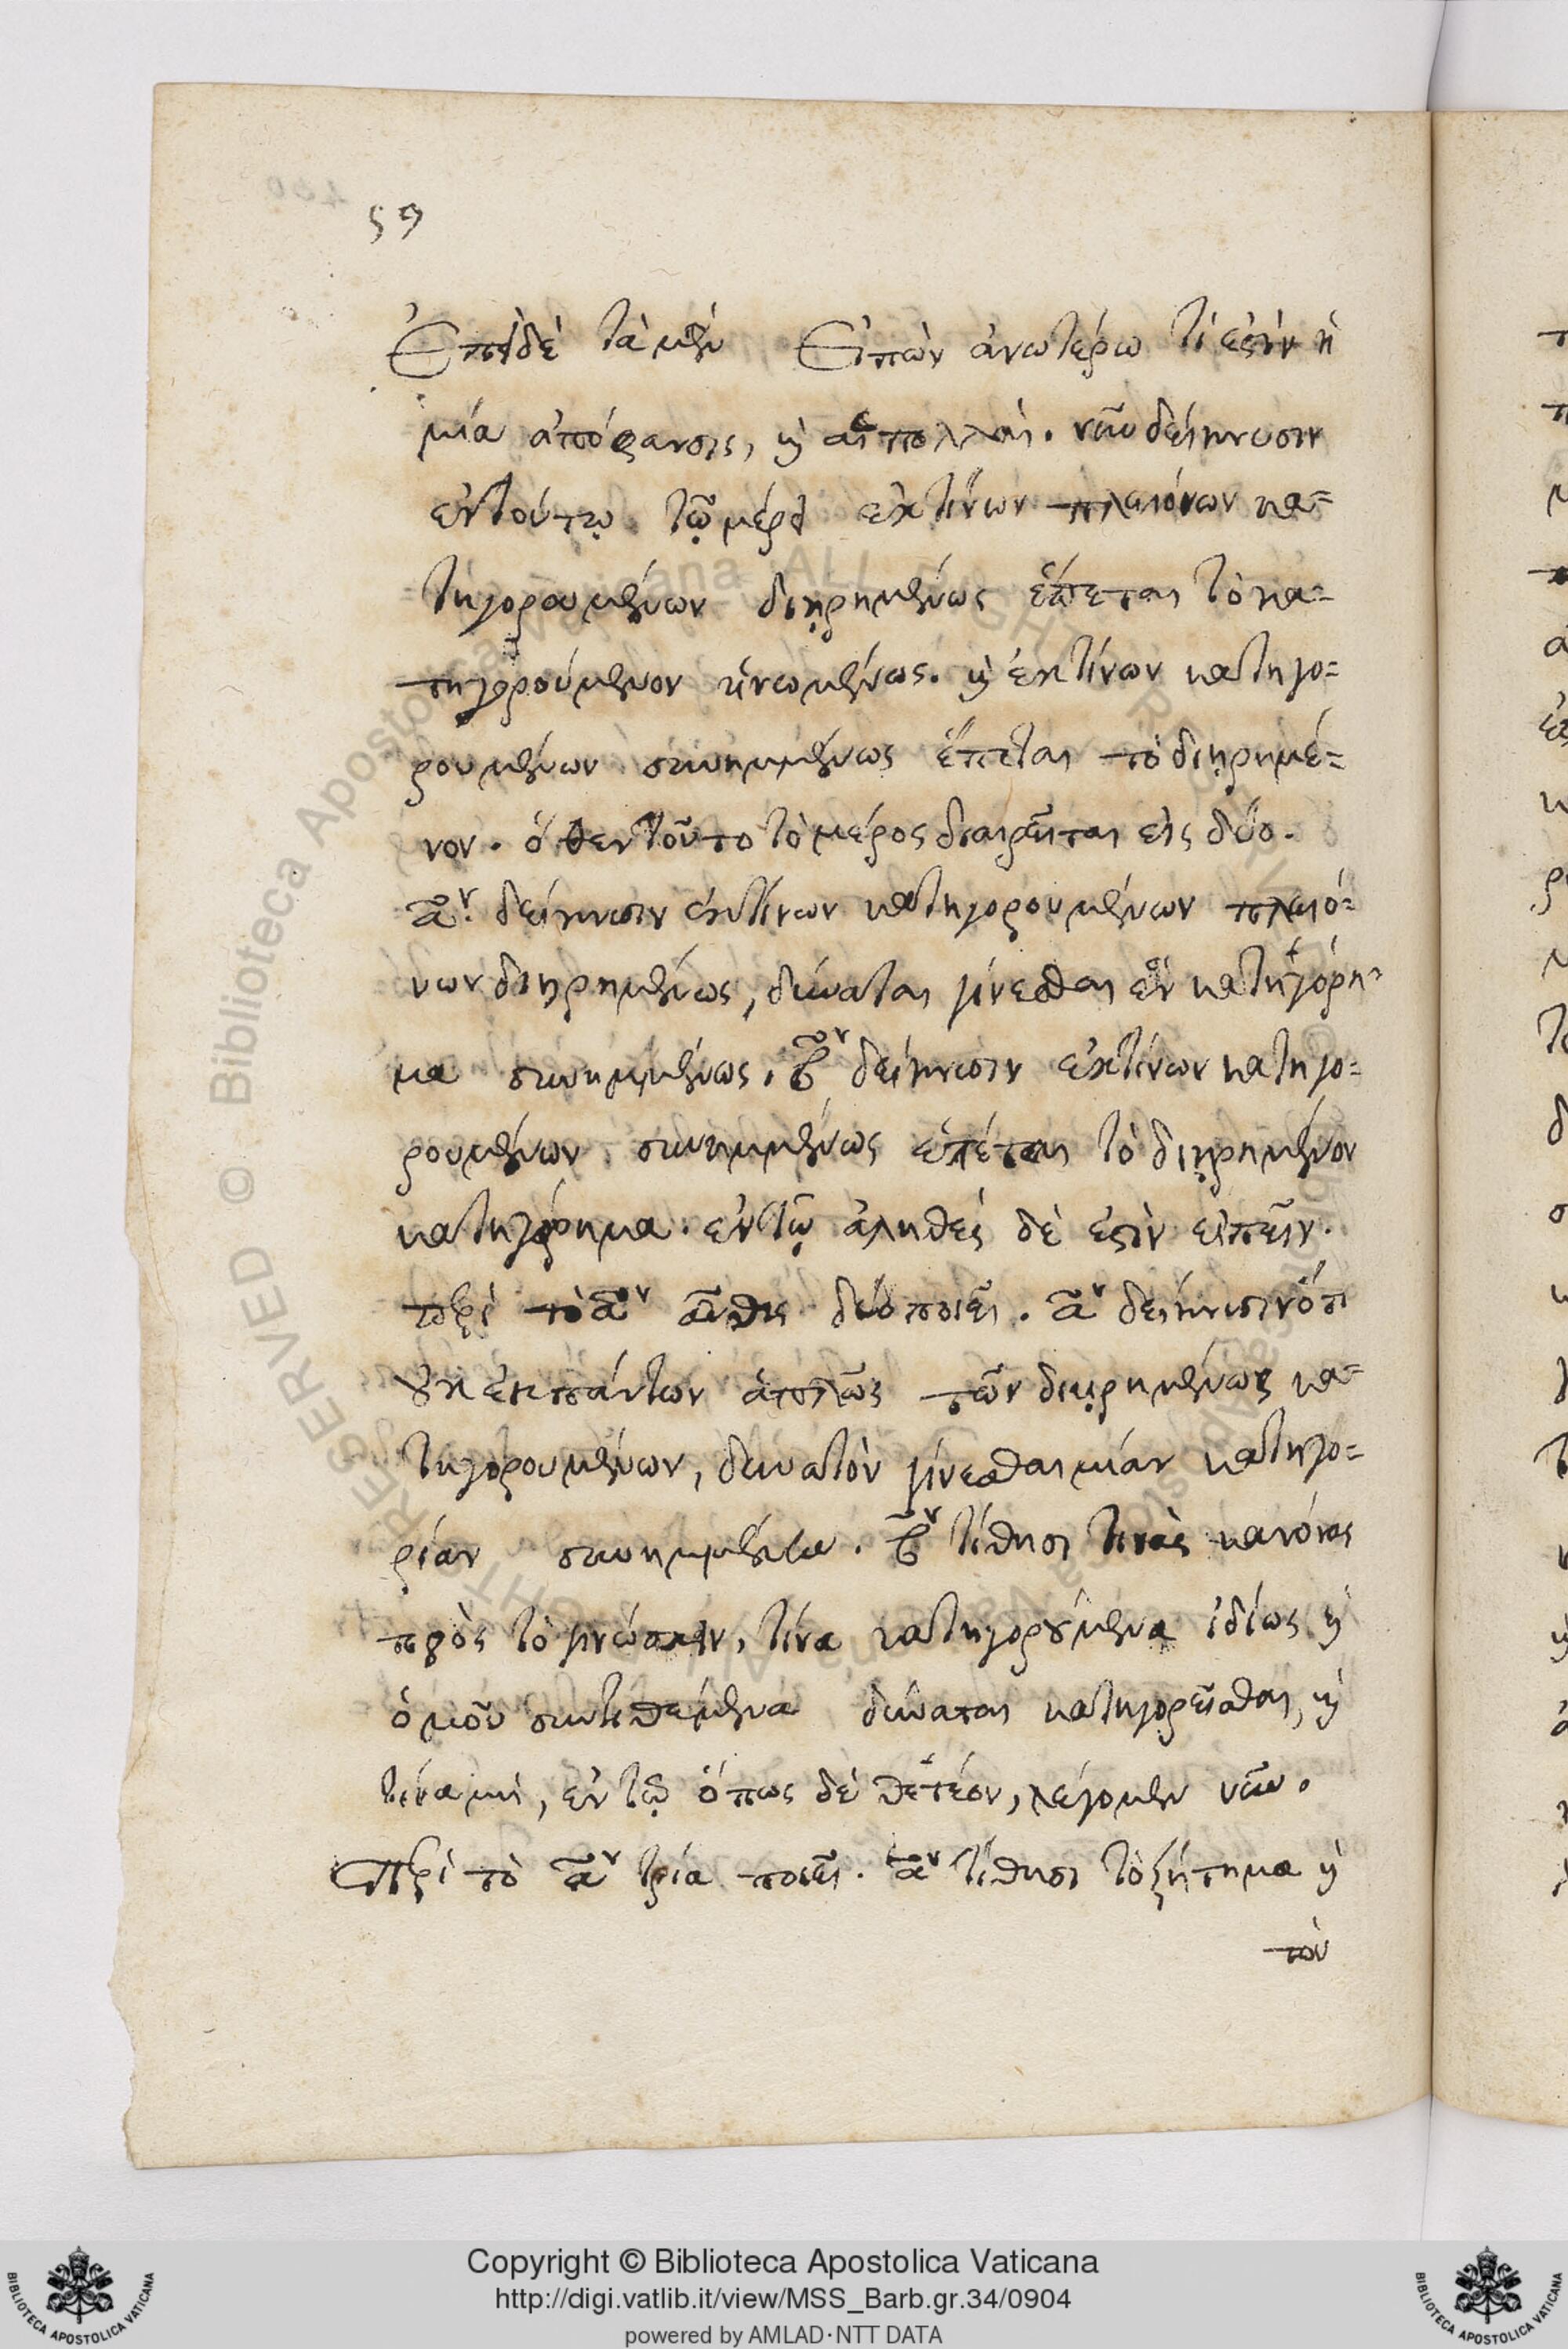 59
Ἐπεὶ δὲ τὰ μὲν Εἰπὼν ἀνωτέρω τί ἐστὶν ἡ
μία ἀπόφανσις, καὶ αἱ πολλαί. νῦν δείκνυσιν
ἐν τούτῳ τῷ μέρει ἐκ τίνων πλειόνων κα=
τηγορουμένων διῃρημένως ἕπεται τὸ κα=
τηγορούμενον ἡνωμένως. καὶ ἐκ τίνων κατηγο=
ρουμένων συνημμένως ἕπεται τὸ διῃρημέ=
νον. ὅθεν τοῦτο τὸ μέρος διαιρεῖται εἰς δύο.
αον. δείκνυσιν ἐκ τίνων κατηγορουμένων πλειό=
νων διῃρημένως, δύναται γίνεσθαι ἓν κατηγόρη=
μα συνημμένως. βον δείκνυσιν ἐκ τίνων κατηγο=
ρουμένων συνημμένως ἕπεται τὸ διῃρημένον
κατηγόρημα. ἐν τῷ ἀληθὲς δὲ ἐστὶν εἰπεῖν.
περὶ τὸ αον αὖθις δύο ποιεῖ. αον δείκνυσιν ὅτι
οὐκ ἐκ πάντων ἁπλῶς τῶν διῃρημένως κα=
τηγορουμένων, δυνατὸν γίνεσθαι μίαν κατηγο=
ρίαν συνημμένην. βον τίθησι τινὰς κανόνας
πρὸς τὸ γνώσκειν, τίνα κατηγορούμενα ἰδίως καὶ
ὁμοῦ συντιθέμενα δύναται κατηγορεῖσθαι, καὶ
τίνα μὴ, ἐν τῷ ὅπως δὲ θετέον, λέγομεν νῦν.
Περὶ τὸ αον τρία ποιεῖ. αον τίθησι τὸ ζήτημα καὶ
τὸν
Copyright © Biblioteca Apostolica Vaticana
http://digi.vatlib.it/view/MSS_Barb.gr.34/0904
powered by AMLAD·NTT DATA